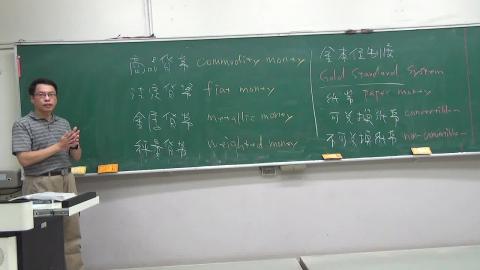 商品貨幣 commodity money
法定貨幣 fiat money
金屬貨幣 metallic money
秤量貨幣 weighted money
金本位制度
Gold Standard System
紙幣 paper money
可兌換紙幣 convertible
不可兌換紙幣 non-convertible